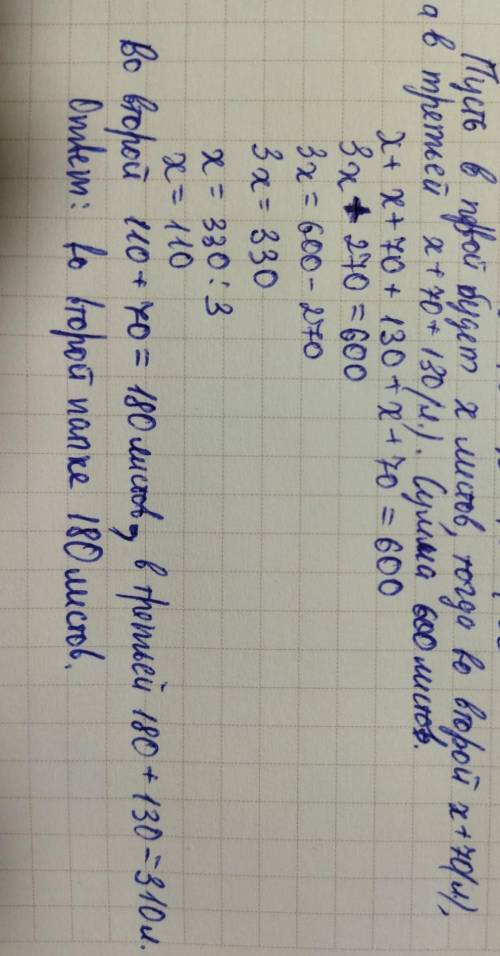 Пусть в первой будет x листов, тогда во второй x+70(л),
а в третьей x+70+130(л.). Сумма 600 листов.
x+x+70+130+x+70=600
3x+270=600
3x=600-270
3x=330
x=330:3
x=110
Во второй 110+70=180 листов, в третьей 180+130=310л.
Ответ: во второй папке 180 листов.